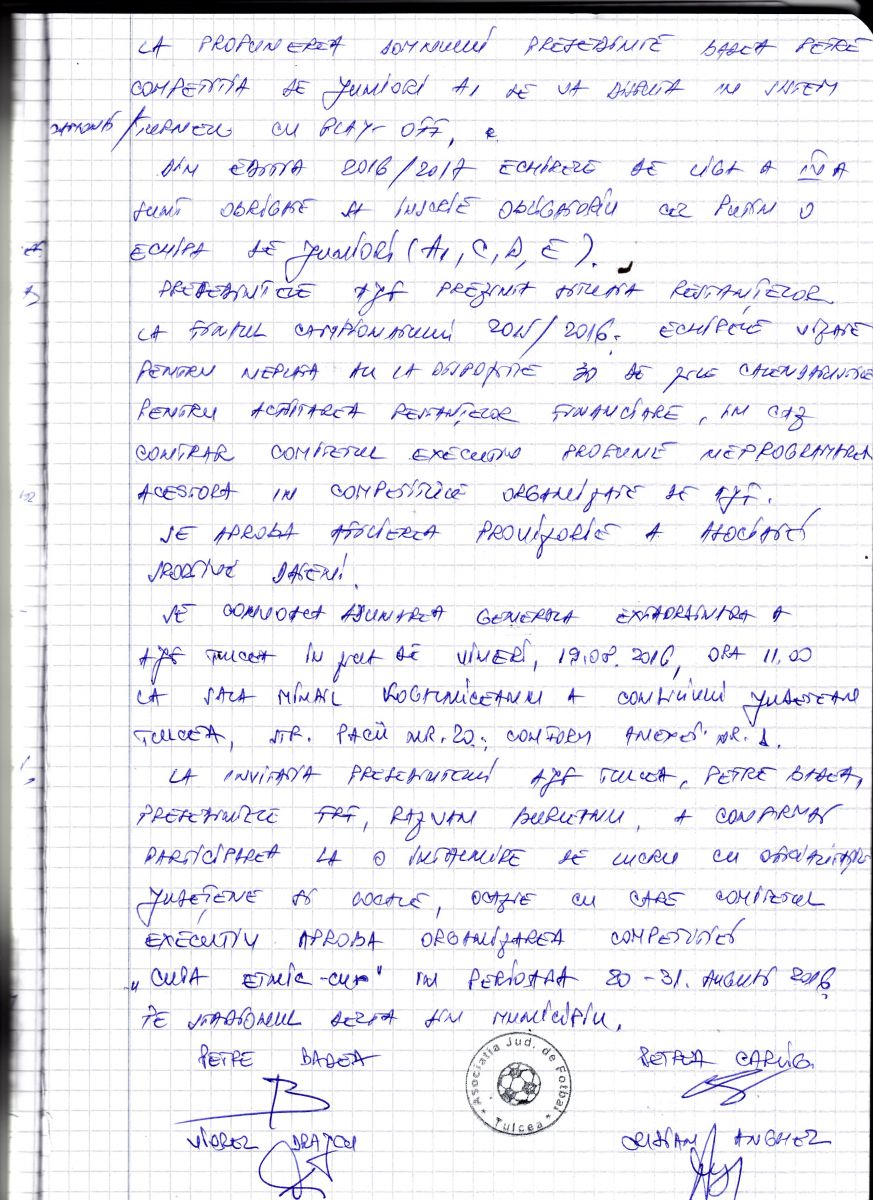 LA PROPUNEREA DOMNULUI PRESEDINTE BADEA PETRE
COMPETITIA DE JUNIORI A1 SE VA DISPUTA IN SISTEM
TURNEU CU PLAY-OFF,
DIN EDITIA 2016/2017 ECHIPELE DE LIGA A IV A
SUNT OBLIGATE SA INSCRIE OBLIGATORIU CEL PUTIN O
ECHIPA DE JUNIORI (A1, C, D, E).
PRESEDINTELE AJF PREZINTA SITUATIA RESTANȚELOR
LA FINALUL CAMPIONATULUI 2015/2016. ECHIPELE VIZATE
PENTRU NEPLATA AU LA DISPOZITIE 30 DE ZILE CALENDARISTICE
PENTRU ACHITAREA RESTANȚELOR FINANCIARE, IN CAZ
CONTRAR COMITETUL EXECUTIV PROPUNE NEPROGRAMAREA
ACESTORA IN COMPETITIILE ORGANIZATE DE AJF.
SE APROBA AFILIEREA PROVIZORIE A ASOCIATIEI
SPORTIVE DAENI.
SE CONVOACA ADUNAREA GENERALA EXTRAORDINARA A
AJF TULCEA IN ZIUA DE VINERI, 19.08.2016, ORA 11.00
LA SALA MIHAIL KOGALNICEANU A CONSILIULUI JUDETEAN
TULCEA, STR. PACII NR. 20, CONFORM ANEXEI NR. 1.
LA INVITATIA PRESEDINTELUI AJF TULCEA, PETRE BADEA,
PRESEDINTELE FRF, RAZVAN BURLEANU, A CONFIRMAT
PARTICIPAREA LA O INTALNIRE DE LUCRU CU OFICIALITATILE
JUDEȚENE SI LOCALE, OCAZIE CU CARE COMITETUL
EXECUTIV APROBA ORGANIZAREA COMPETITIEI
„CUPA ETNIC-CUP" IN PERIOADA 20-31. AUGUST 2016
PE STADIONUL DELTA DIN MUNICIPIU.
PETRE BADEA
Asociatia Jud. de Fotbal * Tulcea *
VIOREL
ANGHEL